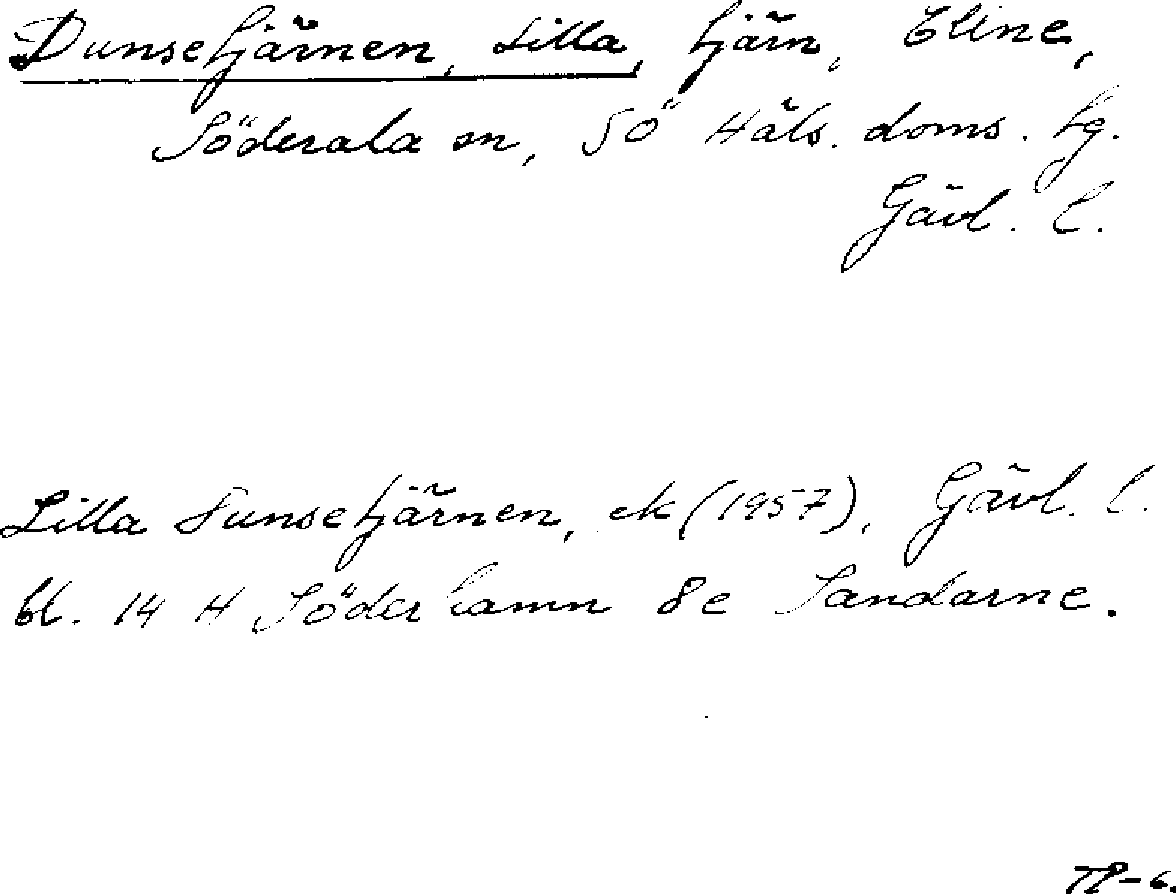 Dunsetjärnen, Lilla, tjärn, Eline,
Söderala sn, SÖ Häls. doms. tg.
Gävl. l.
Lilla Dunsetjärnen, ek (1957), Gävl. l.
bl. 14 H Söderhamn 8e Sandarne.
TP-6